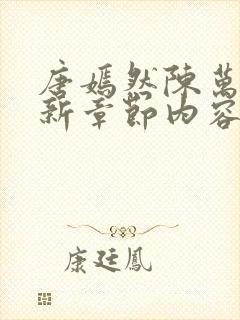 唐嫣然陳萬
新章節内容
康廷鳳